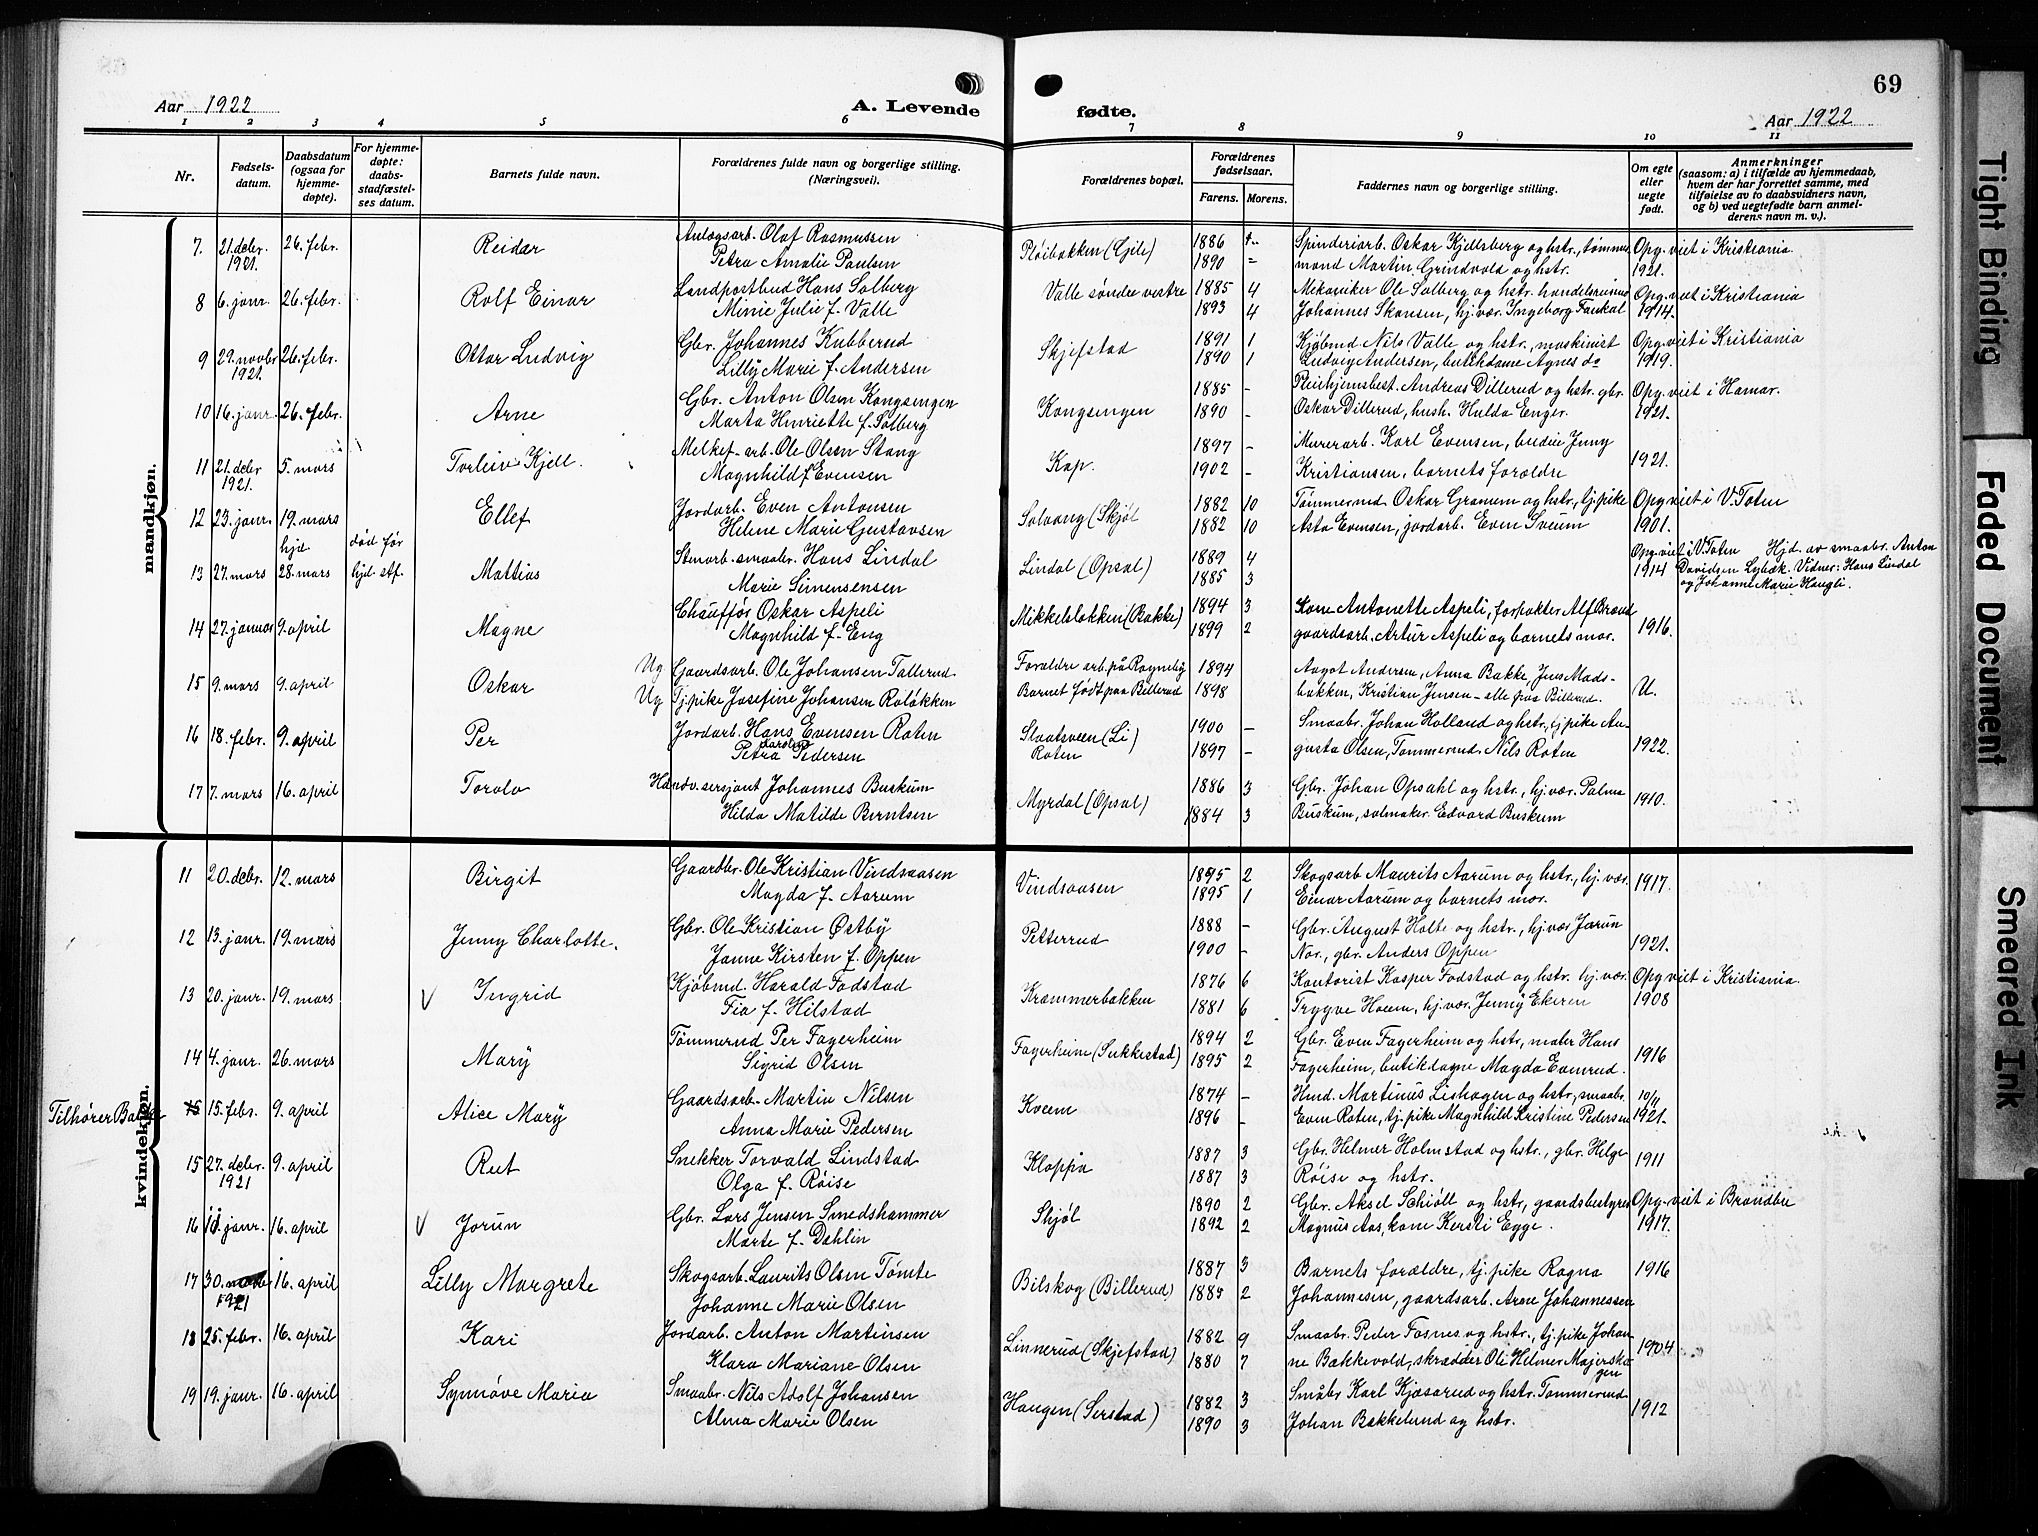 69
Aar 1922
A. Levende
fødte.
Aar 1922
1 2 3 4 5 6 7 8 9 10 11
Nr.
Fødsels-
datum.
Daabsdatum
(ogsaa for
hjemme-
døpte).
For hjemme-
døpte:
daabs-
stadfæstel-
ses datum.
Barnets fulde navn.
Forældrenes fulde navn og borgerlige stilling.
(Næringsvei).
Forældrenes bopæl.
Forældrenes
fødselsaar.
Farens. Morens.
Faddernes navn og borgerlige stilling.
Om egte
eller
uegte
født.
Anmerkninger
(saasom: a) i tilfælde av hjemmedaab,
hvem der har forrettet samme, med
tilføielse av to daabsvidners navn,
og b) ved uegtefødte barn anmel-
derens navn m. v.).
mandkjøn.
7. 21. debr. 26. febr. Reidar Anlægsarb. Olaf Rasmussen Pløibakken (Gjile) 1886 Spinderiarb. Oskar Kjellsberg og hstr., tømmer Opg. viet i Kristiania
1921. Petra Amalie Paulsen 1890 mand Martin Grindvold og hstr. 1921.
8 6. janr. 26. febr. Rolf Einar Landpostbud Hans Solberg Valle søndre vestre 1885 4 Mekaniker Ole Solberg og hstr. handelsreisend Opg. viet i Kristiania
Minie Julie f. Valle 1893 4 Johannes Skansen, hj. vær. Ingeborg Faukal 1914.
9 29. novbr 26. febr. Ottar Ludvig Gbr. Johannes Kubberud Skjefstad 1891 1 Kjøbmd Nils Valle og hstr., maskinist Opg. viet i Kristiania
1921. Lilly Marie f. Andersen 1890 1 Ludvig Andersen, butikdame Agnes do 1919.
10 16. janr. 26. febr. Arne Gbr. Anton Olsen Kongsengen Kongsengen 1885 - Pleiehjemsbest. Andreas Dillerud og hstr. gbr. Opg. viet i Hamar.
Marta Henriette f. Solberg 1890 - Oskar Dillerud, hush. Hulda Enger. 1921.
11 21. debr 5. mars Torleiv Kjell. Melkef.-arb. Ole Olsen Stang Kap. 1897 - Murerarb. Karl Evensen, budeie Jenny 1921.
1921. Magnhild f Evensen 1902 - Kristiansen, barnets forældre
12 23. janr. 19. mars Ellef Jordarb. Even Antonsen Solvang (Skjøl 1882 10 Tømmermd Oskar Granum og hstr., tj. pike Opg viet i V. Toten
Helene Marie Gustavsen 1882 10 Asta Evensen, jordarb. Even Sveum 1901.
13 27. mars hjd. 28. mars død før hjd. stf. Mattias Stenarb. smaabr. Hans Lindal Lindal (Opsal) 1889 4 Opg. viet i V. Toten Hjd. av smaabr. Anton
Marie Simensensen 1885 3 1914 Davidsen Lybæk. Vidner: Hans Lindal
og Johanne Marie Haugli.
14 27. januar 9. april Magne Chauffør Oskar Aspeli Mikkelsløkken (Bakke) 1894 3 Kone Antonette Aspeli, forpakter Alf Brænd 1916.
Magnhild f. Eng 1899 2 gaardsarb. Artur Aspeli og barnets mor.
15 9. mars 9. april Oskar Ug Gaardsarb. Ole Johansen Tallerud Forældre arb. på Rogneby 1894 Aagot Andersen, Anna Bakke, Jens Mads- U.
Ug Tj. pike Josefine Johansen Roløkken Barnet født paa Billerud 1898 bakken, Kristian Jensen - alle paa Billerud.
16 18. febr. 9. april Per Jordarb. Hans Evensen Roten Slaatsveen (Li) 1900 - Smaabr. Johan Holland og hstr., tj pike Au- 1922.
Petra Karoline Pedersen Roten 1897 - gusta Olsen, Tømmermd Nils Roten
17 7. mars 16. april Torolv Handv. sersjant Johannes Buskum Myrdal (Opsal) 1886 3 Gbr. Johan Opsahl og hstr., hj. vær. Palma 1910.
Hilda Matilde Berntsen 1884 3 Buskum, salmaker Edvard Buskum
kvindekjøn.
11 20. debr. 12. mars Birgit Gaardbr. Ole Kristian Vindsaasen Vindsaasen 1895 2 Skogsarb Maurits Aarum og hstr., hj. vær. 1917.
Magda f. Aarum 1895 1 Einar Aarum og barnets mor.
12 13. janr. 19. mars Jenny Charlotte. Gbr. Ole Kristian Østby Petterrud 1888 - Gbr. August Holte og hstr., hj. vær Jorun 1921.
Janna Kirsten f. Oppen 1900 - Nor., gbr. Anders Oppen
13 20. janr. 19. mars V Ingrid Kjøbmd. Harald Fodstad Krammerbakken 1876 6 Kontorist Kasper Fodstad og hstr. hj. vær. Opg viet i Kristiania.
Fia f. Hilstad 1881 6 Trygve Hoem, hj. vær. Jenny Ekeren 1908
14 4. janr. 26. mars Mary Tømmermd Per Fagerheim Fagerheim (Sukkestad) 1894 2 Gbr. Even Fagerheim og hstr., maler Hans 1916
Sigrid Olsen 1895 2 Fagerheim, butikdame Magda Evenrud.
Tilhører Balke 15 15. febr. 9. april Alice Mary Gaardsarb. Martin Nilsen Kveem 1874 - Hmd. Martinus Lishagen og hstr., smaabr. 10/11
Anna Marie Pedersen 1896 - Even Roten, tj. pike Magnhild Kristine Pedersen 1921.
15 27. debr. 9. april Rut Snekker Torvald Lindstad Kloppa 1887 3 Gbr. Helmer Holmstad og hstr., gbr. Helge 1911
1921 Olga f. Røise 1887 3 Røise og hstr.
16 11. janr. 16. april V Jorun Gbr. Lars Jensen Smedshammer Skjøl 1890 2 Gbr. Aksel Schiøll og hstr., gaardsbestyrer Opg. viet i Brandbu
Marte f. Dæhlin 1892 2 Magnus Aas, kone Kersti Egge. 1917.
17 30. 16. april Lilly Margrete Skogsarb. Laurits Olsen Tømte Bilskog (Billerud) 1887 3 Barnets forældre, tj. pike Ragna 1916
1921 Johanne Marie Olsen 1885 2 Johannesen, gaardsarb. Arne Johannessen
18 25. febr. 16. april Kari Jordarb. Anton Martinsen Linnerud (Skjefstad) 1882 9 Smaabr. Peder Fosnes og hstr., tj. pike Johan 1904
Klara Mariane Olsen 1880 7 ne Bakkevold, skrædder Ole Helmer Majerska-
gen
19 19. janr. 16. april Synnøve Maria Smaabr. Nils Adolf Johansen Haugen (Serstad) 1882 3 Småbr Karl Kjøsarud og hstr. Tømmermd 1912
Alma Marie Olsen 1890 3 Johan Bakkelund og hstr.
Tight Binding
Faded Document
Smeared Ink